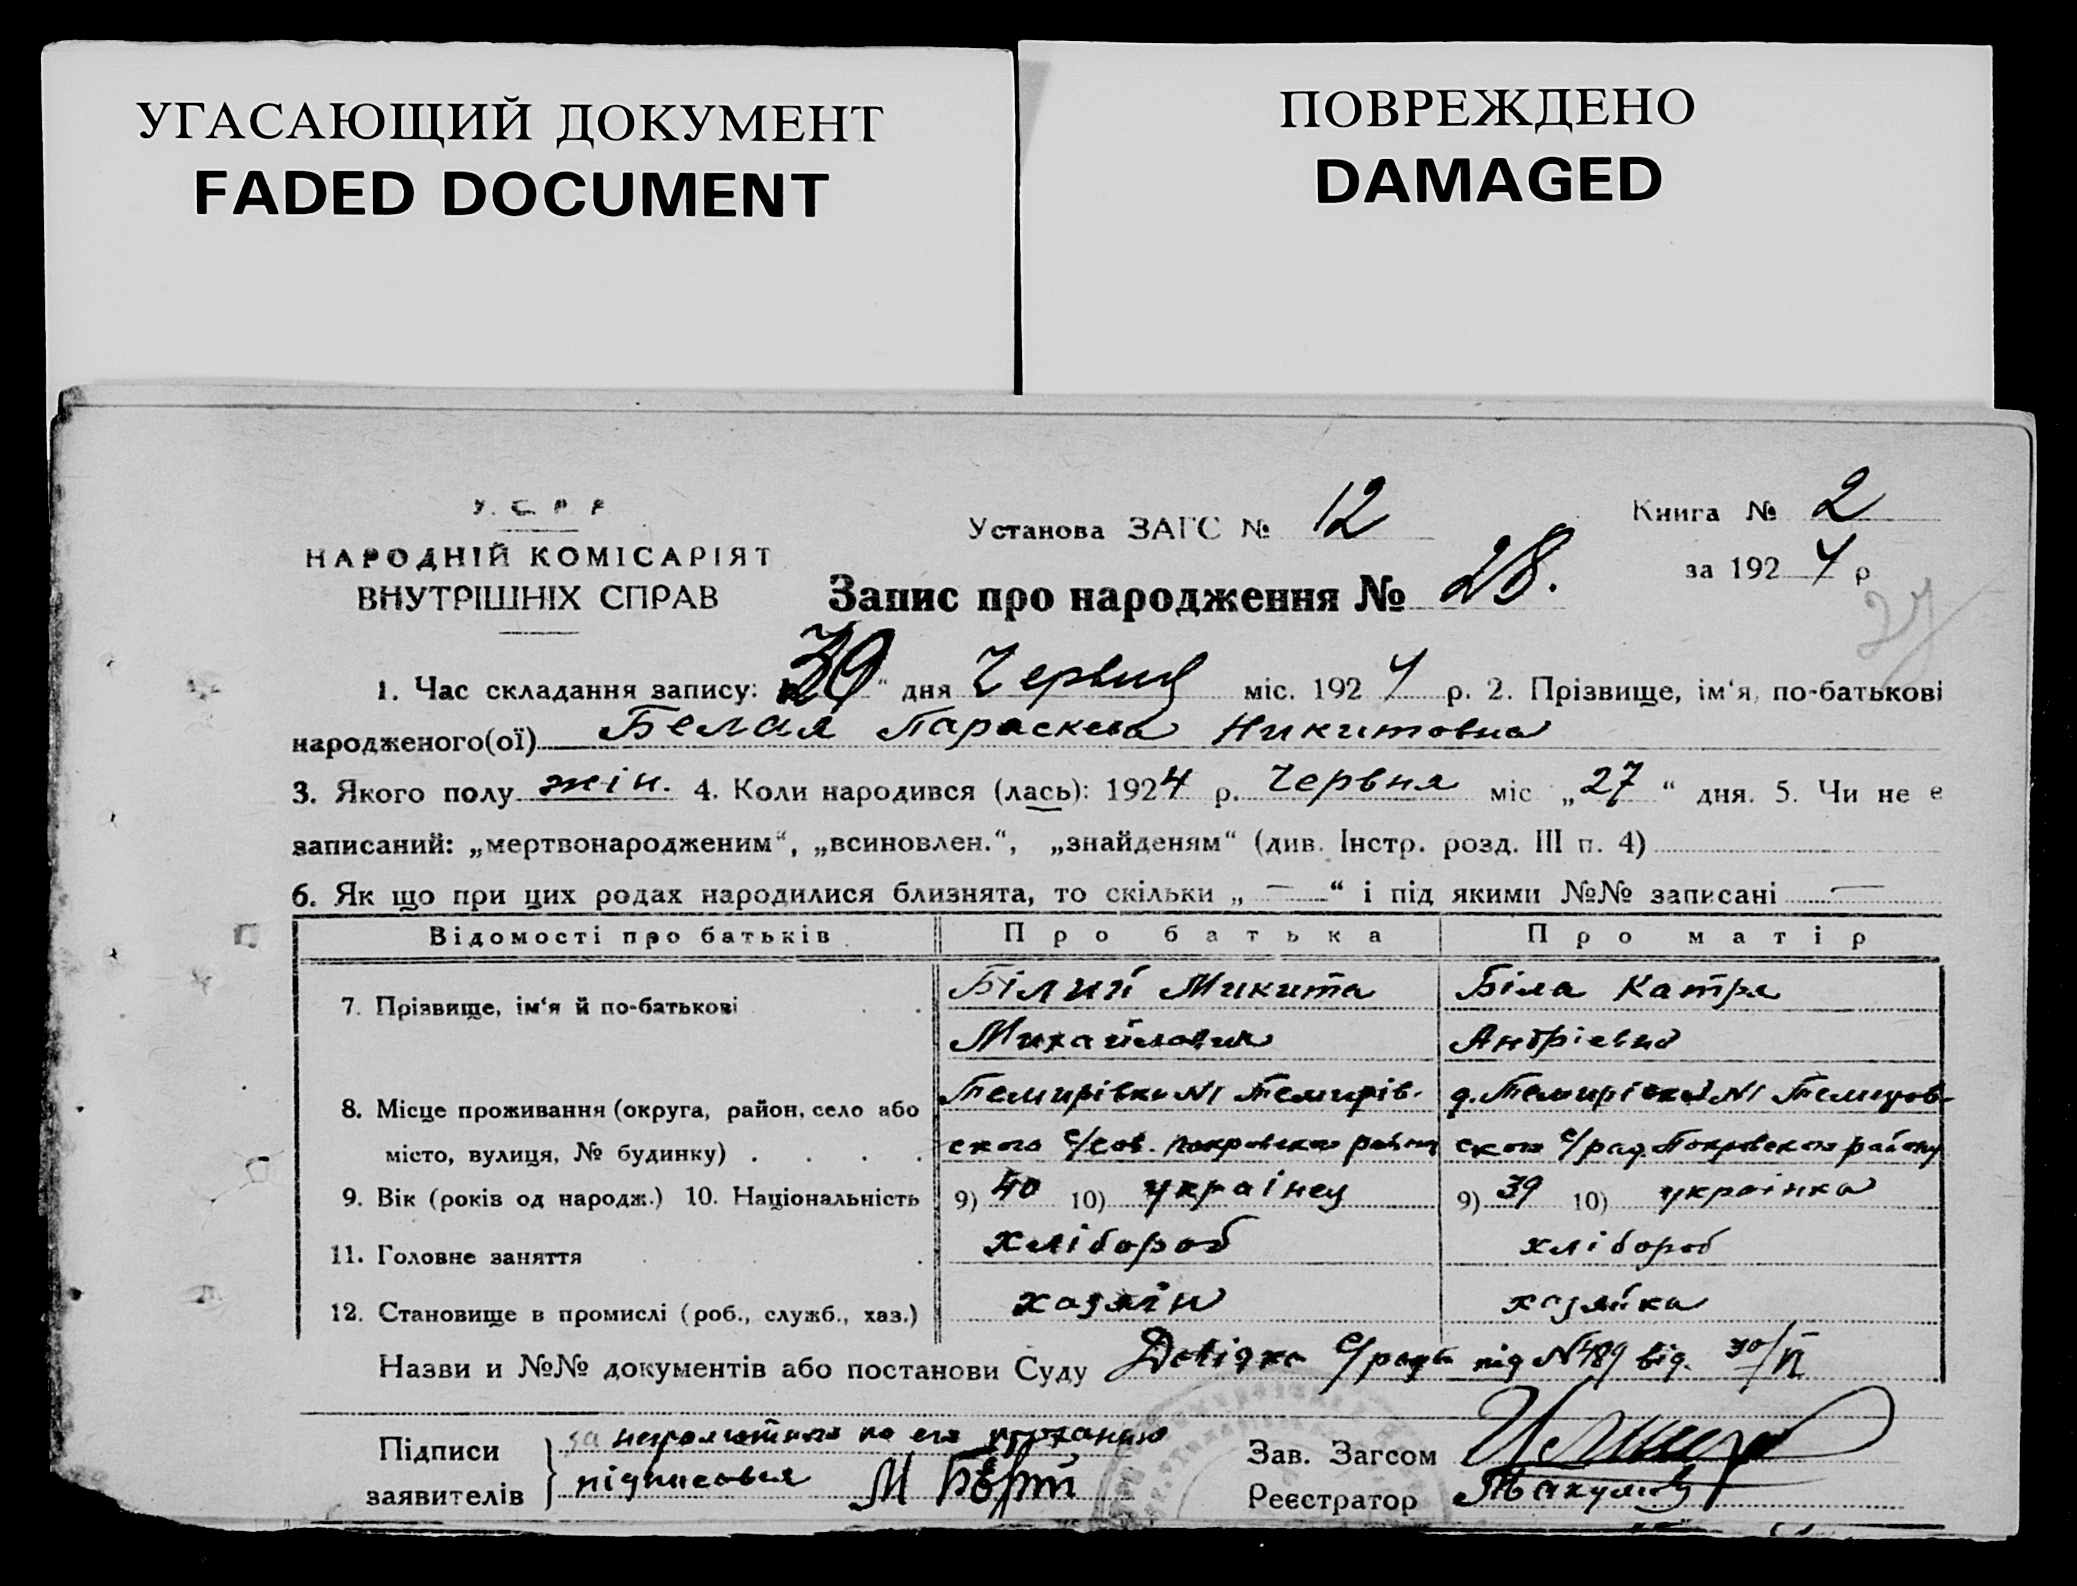 УГАСАЮЩИЙ ДОКУМЕНТ
FADED DOCUMENT
ПОВРЕЖДЕНО
DAMAGED
У. С. Р. Р.
НАРОДНІЙ КОМІСАРІЯТ
ВНУТРІШНІХ СПРАВ
Установа ЗАГС № 12
Книга № 2
за 1924 р
Запис про народження № 28.
27
1. Час складання запису: 30 “ дня Червня міс. 1924 р. 2. Прізвище, ім‘я, по-батькові
народженого(ої) Белая Параскева Никитовна
3. Якого полу жін. 4. Коли народився (лась): 1924 р. Червня міс „27“ дня. 5. Чи не е
записаний: „мертвонародженим“, „всиновлен.“, „знайденям“ (див. Інстр. розд. III п. 4)
6. Як що при цих родах народилися близнята, то скільки „ — “ і під якими №№ записані —
Відомості про батьків Про батька Про матір
7. Прізвище, ім‘я й по-батькові Білий Микита Біла Катря
Михайлович Андрієвна
8. Місце проживання (округа, район, село або Темирівки №1 Темирів- д. Темирівка №1 Темиров-
місто, вулиця, № будинку) ского с/сов. Покровского району ского с/рад. Покровского району
9. Вік (років од народж.) 10. Національність 9) 40 10) українец 9) 39 10) українка
11. Головне заняття хлібороб хлібороб
12. Становище в промислі (роб., служб., хаз.) хазяїн хазяйка
Назви и №№ документів або постанови Суду Довідка с/ради під №489 від. 30/
Підписи за неграмотного по его проханию
заявителів підписався М
Зав. Загсом
Реєстратор